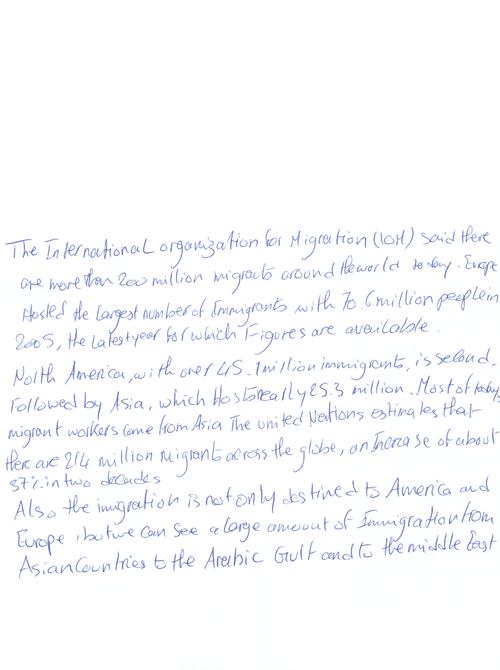 The International organization for Migration (IOM) said there
are more than 200 million migrants around the world today. Europe
Hosted the largest number of Immigrants with 70.6 million people in
2005, the latest year for which Figures are available.
North America, with over 45.1 million immigrants, is second.
Followed by Asia, which Hosts nearly 25.3 million. Most of today's
migrant workers come from Asia The united Nations estimates that
there are 214 million migrants across the globe, an Increase of about
37% in two decades
Also the imigration is not only destined to America and
Europe, but we can see a large amount of Immigration from
Asian Countries to the Arabic Gulf and to the middle East